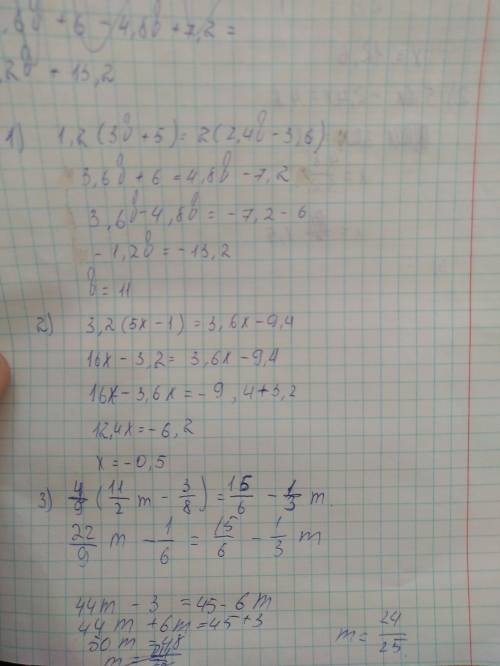 ,6b + 6 - 4,8b + 7,2 =
,2b + 13,2
1) 1,2(3b + 5) = 2(2,4b - 3,6)
3,6b + 6 = 4,8b - 7,2
3,6b - 4,8b = -7,2 - 6
-1,2b = -13,2
b = 11
2) 3,2(5x - 1) = 3,6x - 9,4
16x - 3,2 = 3,6x - 9,4
16x - 3,6x = -9,4 + 3,2
12,4x = -6,2
x = -0,5
3) 4/9 (11/2 m - 3/8) = 15/6 - 1/3 m.
22/9 m - 1/6 = 15/6 - 1/3 m
44m - 3 = 45 - 6m
44m + 6m = 45 + 3
50m = 48
m =
m = 24/25.